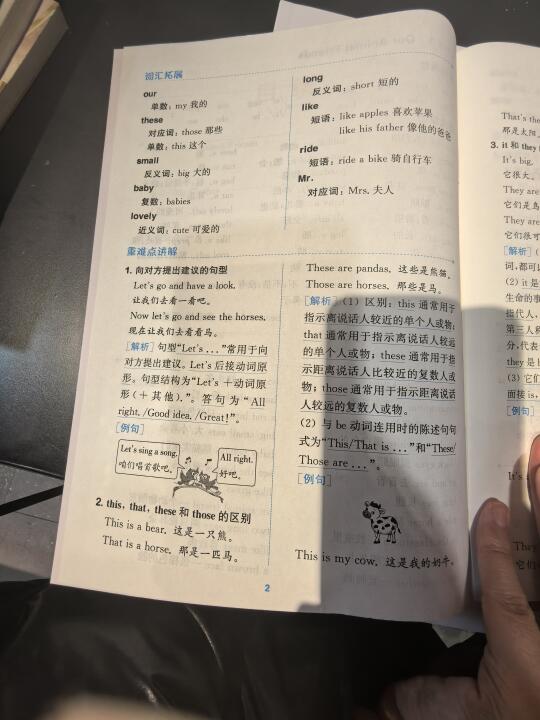 词汇拓展
our
单数：my 我的
these
对应词：those 那些
单数：this 这个
small
反义词：big 大的
baby
复数：babies
lovely
近义词：cute 可爱的
long
反义词：short 短的
like
短语：like apples 喜欢苹果
like his father 像他的爸爸
ride
短语：ride a bike 骑自行车
Mr.
对应词：Mrs. 夫人
重难点讲解
1. 向对方提出建议的句型
Let's go and have a look.
让我们去看一看吧。
Now let's go and see the horses.
现在让我们去看看马。
[解析] 句型“Let's ...”常用于向
对方提出建议。Let's 后接动词原
形。句型结构为“Let's ＋动词原
形（＋其他）.”。答句为“All
right. /Good idea. /Great!”。
[例句]
Let's sing a song.
咱们唱首歌吧。
All right.
好吧。
2. this, that, these 和 those 的区别
This is a bear. 这是一只熊。
That is a horse. 那是一匹马。
These are pandas. 这些是熊猫。
Those are horses. 那些是马。
[解析]（1）区别：this 通常用于
指示离说话人较近的单个人或物；
that 通常用于指示离说话人较远
的单个人或物；these 通常用于指
示距离说话人比较近的复数人或
物；those 通常用于指示距离说话
人较远的复数人或物。
（2）与 be 动词连用时的陈述句句
式为“This/That is ...”和“These/
Those are ...”。
[例句]
This is my cow. 这是我的奶牛。
2
That's the
那是太阳
3. it 和 they
It's big.
它很大。
They are
它们是鸟
They are
它们很可
[解析]
词，都可以
(2) it 是
生命的事
指代人，
第三人称
分，代表
they 是
(3) 它们
面接 is，
[例句]
It's
They
它们